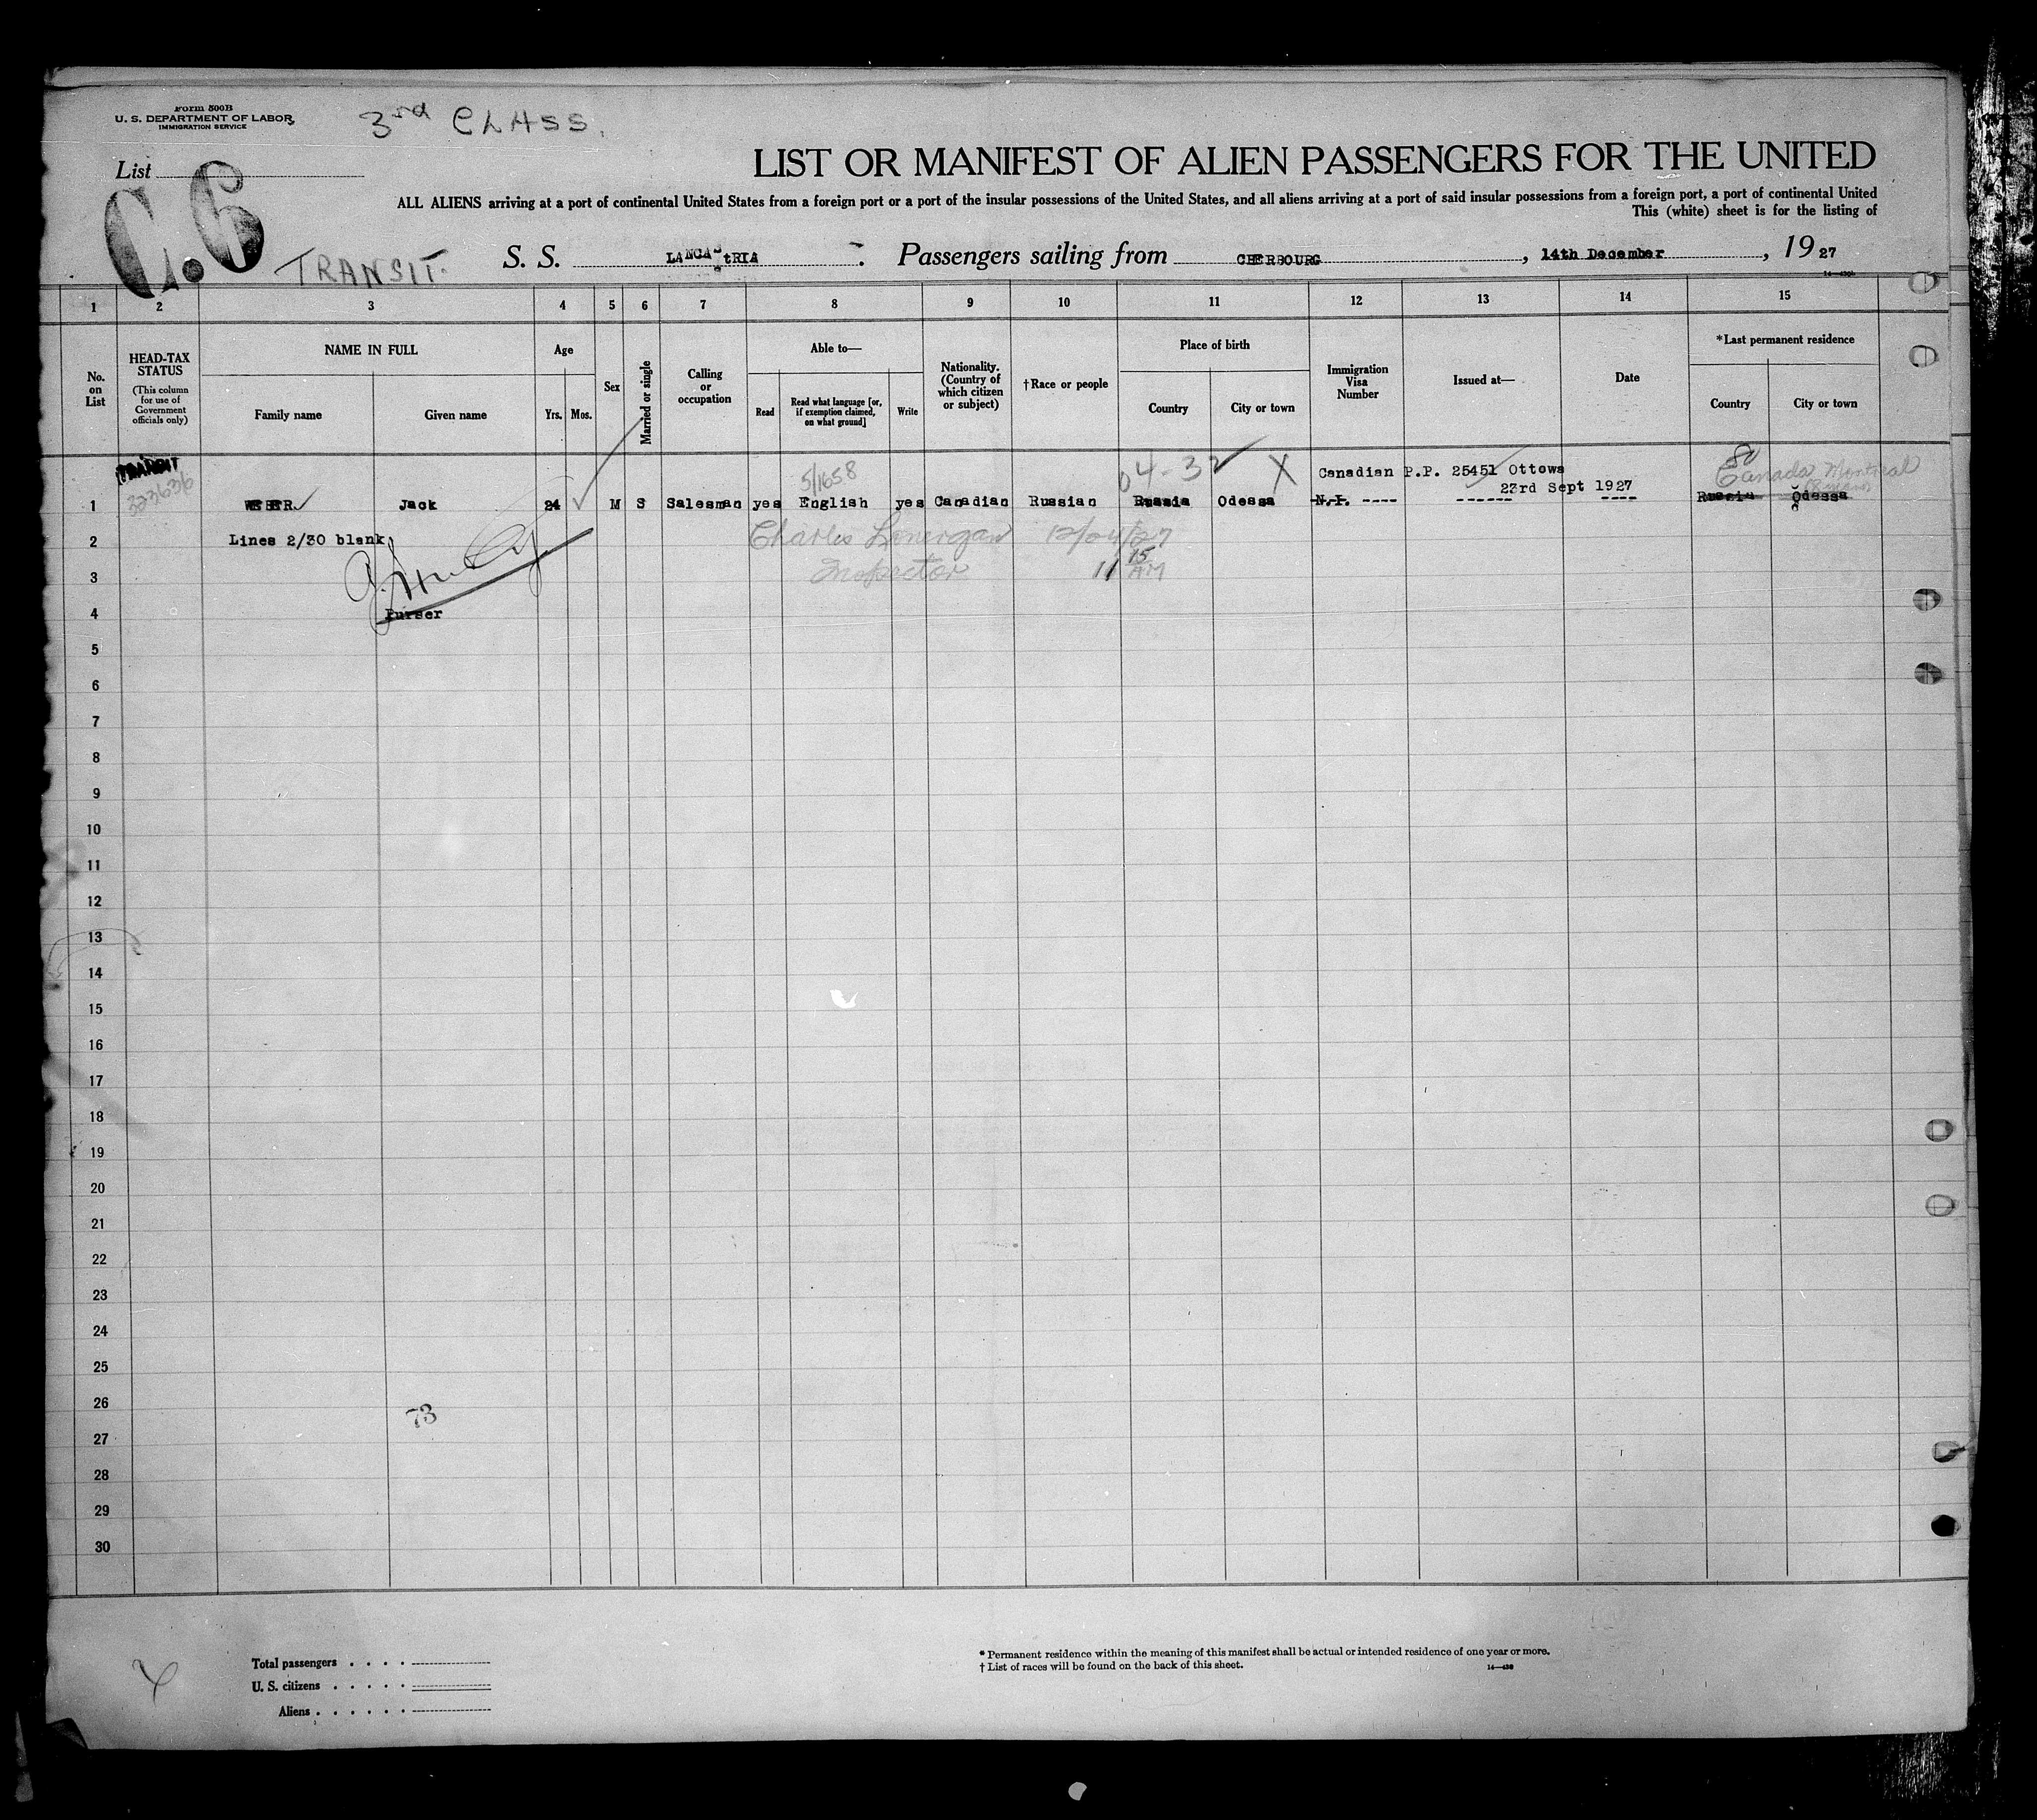 Form 500B
U. S. DEPARTMENT OF LABOR
IMMIGRATION SERVICE
3rd CLASS.
List
LIST OR MANIFEST OF ALIEN PASSENGERS FOR THE UNITED
ALL ALIENS arriving at a port of continental United States from a foreign port or a port of the insular possessions of the United States, and all aliens arriving at a port of said insular possessions from a foreign port, a port of continental United
This (white) sheet is for the listing of
TRANSIT.
S. S. LANCAStRIA Passengers sailing from CHERBOURG, 14th December, 19 27
1 2 3 4 5 6 7 8 9 10 11 12 13 14 15
No. on List
HEAD-TAX STATUS
(This column for use of Government officials only)
NAME IN FULL
Family name
Given name
Age
Yrs.
Mos.
Sex
Married or single
Calling or occupation
Able to—
Read
Read what language [or, if exemption claimed, on what ground]
Write
Nationality. (Country of which citizen or subject)
†Race or people
Place of birth
Country
City or town
Immigration Visa Number
Issued at—
Date
*Last permanent residence
Country
City or town
TRANSIT
323636
5/1658
04-32 X
Canadian P.P. 25451 Ottowa
23rd Sept 1927
Canada Montreal
1 WEBER Jack 24 M S Salesman yes English yes Canadian Russian Russia Odessa N.I. ---- ------ ---- Russia Odessa
2 Lines 2/30 blank
Charles Lonergan
Inspector
11 15 AM
3
4 Purser
5
6
7
8
9
10
11
12
13
14
15
16
17
18
19
20
21
22
23
24
25
26
73
27
28
29
30
Total passengers . . . .
U. S. citizens . . . . .
Aliens . . . . . .
* Permanent residence within the meaning of this manifest shall be actual or intended residence of one year or more.
† List of races will be found on the back of this sheet.
14—430